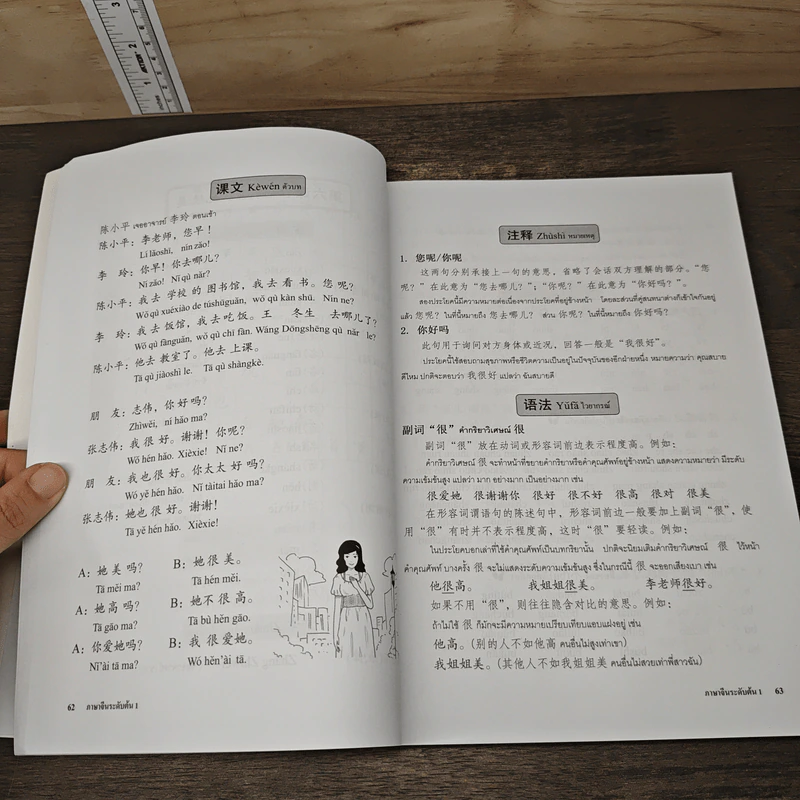 课文 Kèwén ตัวบท
陈小平 เจออาจารย์ 李玲 ตอนเช้า
陈小平：李老师，您早！
Lǐ lǎoshī, nín zǎo!
李　玲：你早！你去哪儿？
Nǐ zǎo! Nǐ qù nǎr?
陈小平：我去 学校 的 图书馆，我去 看 书。您 呢？
Wǒ qù xuéxiào de túshūguǎn, wǒ qù kàn shū. Nín ne?
李　玲：我去 饭馆，我去吃饭。王　冬生　去哪儿了？
Wǒ qù fànguǎn, wǒ qù chī fàn. Wáng Dōngshēng qù nǎr le?
陈小平：他去 教室了。他去 上课。
Tā qù jiàoshì le. Tā qù shàngkè.
朋　友：志伟，你好 吗？
Zhìwěi, nǐ hǎo ma?
张志伟：我 很 好。谢谢！你呢？
Wǒ hěn hǎo. Xièxie! Nǐ ne?
朋　友：我也 很 好。你太太 好 吗？
Wǒ yě hěn hǎo. Nǐ tàitai hǎo ma?
张志伟：她也 很 好。谢谢！
Tā yě hěn hǎo. Xièxie!
A：她 美 吗？ B：她 很 美。
Tā měi ma? Tā hěn měi.
A：她 高 吗？ B：她 不 很 高。
Tā gāo ma? Tā bù hěn gāo.
A：你爱她 吗？ B：我 很 爱她。
Nǐ'ài tā ma? Wǒ hěn'ài tā.
62 ภาษาจีนระดับต้น 1
注释 Zhùshì หมายเหตุ
1. 您呢/你呢
这两句分别承接上一句的意思，省略了会话双方理解的部分。“您
呢？”在此意为“您去哪儿？”；“你呢？”在此意为“你好吗？”。
สองประโยคนี้มีความหมายต่อเนื่องจากประโยคที่อยู่ข้างหน้า โดยละส่วนที่คู่สนทนาต่างก็เข้าใจกันอยู่
แล้ว 您呢？ ในที่นี้หมายถึง 您去哪儿？ ส่วน 你呢？ ในที่นี้หมายถึง 你好吗？
2. 你好吗
此句用于询问对方身体或近况，回答一般是“我很好”。
ประโยคนี้ใช้สอบถามสุขภาพหรือชีวิตความเป็นอยู่ในปัจจุบันของอีกฝ่ายหนึ่ง หมายความว่า คุณสบาย
ดีไหม ปกติจะตอบว่า 我很好 แปลว่า ฉันสบายดี
语法 Yǔfǎ ไวยากรณ์
副词“很” คำกริยาวิเศษณ์ 很
副词“很”放在动词或形容词前边表示程度高。例如：
คำกริยาวิเศษณ์ 很 จะทำหน้าที่ขยายคำกริยาหรือคำคุณศัพท์อยู่ข้างหน้า แสดงความหมายว่า มีระดับ
ความเข้มข้นสูง แปลว่า มาก อย่างมาก เป็นอย่างมาก เช่น
很爱她 很谢谢你 很好 很不好 很高 很对 很美
在形容词谓语句的陈述句中，形容词前边一般要加上副词“很”，使
用“很”有时并不表示程度高，这时“很”要轻读。例如：
ในประโยคบอกเล่าที่ใช้คำคุณศัพท์เป็นบทกริยานั้น ปกติจะนิยมเติมคำกริยาวิเศษณ์ 很 ไว้หน้า
คำคุณศัพท์ บางครั้ง 很 จะไม่แสดงระดับความเข้มข้นสูง ซึ่งในกรณีนี้ 很 จะออกเสียงเบา เช่น
他很高。 我姐姐很美。 李老师很好。
如果不用“很”，则往往隐含对比的意思。例如：
ถ้าไม่ใช้ 很 ก็มักจะมีความหมายเปรียบเทียบแอบแฝงอยู่ เช่น
他高。(别的人不如他高 คนอื่นไม่สูงเท่าเขา)
我姐姐美。(其他人不如我姐姐美 คนอื่นไม่สวยเท่าพี่สาวฉัน)
ภาษาจีนระดับต้น 1 63